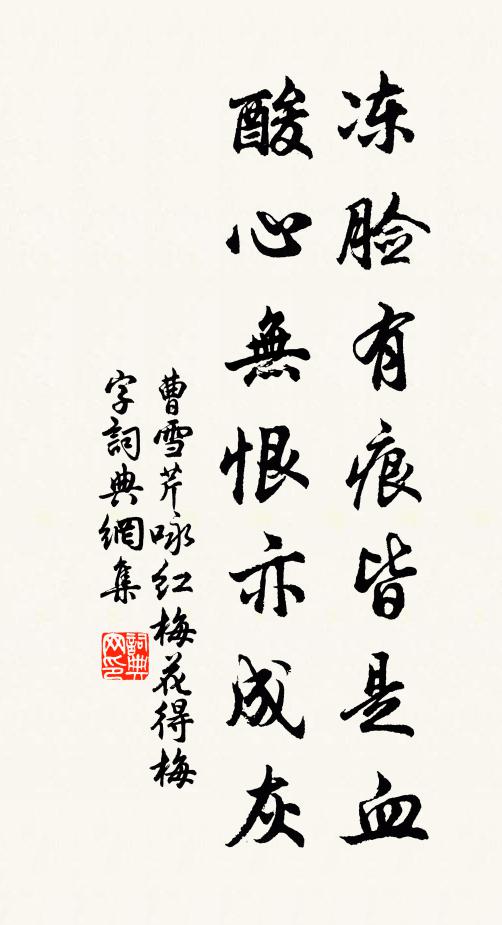 冻脸有痕皆是血
酸心無恨亦成灰
曹雪芹咏红梅花得梅
字詞典網集
詞典
网印